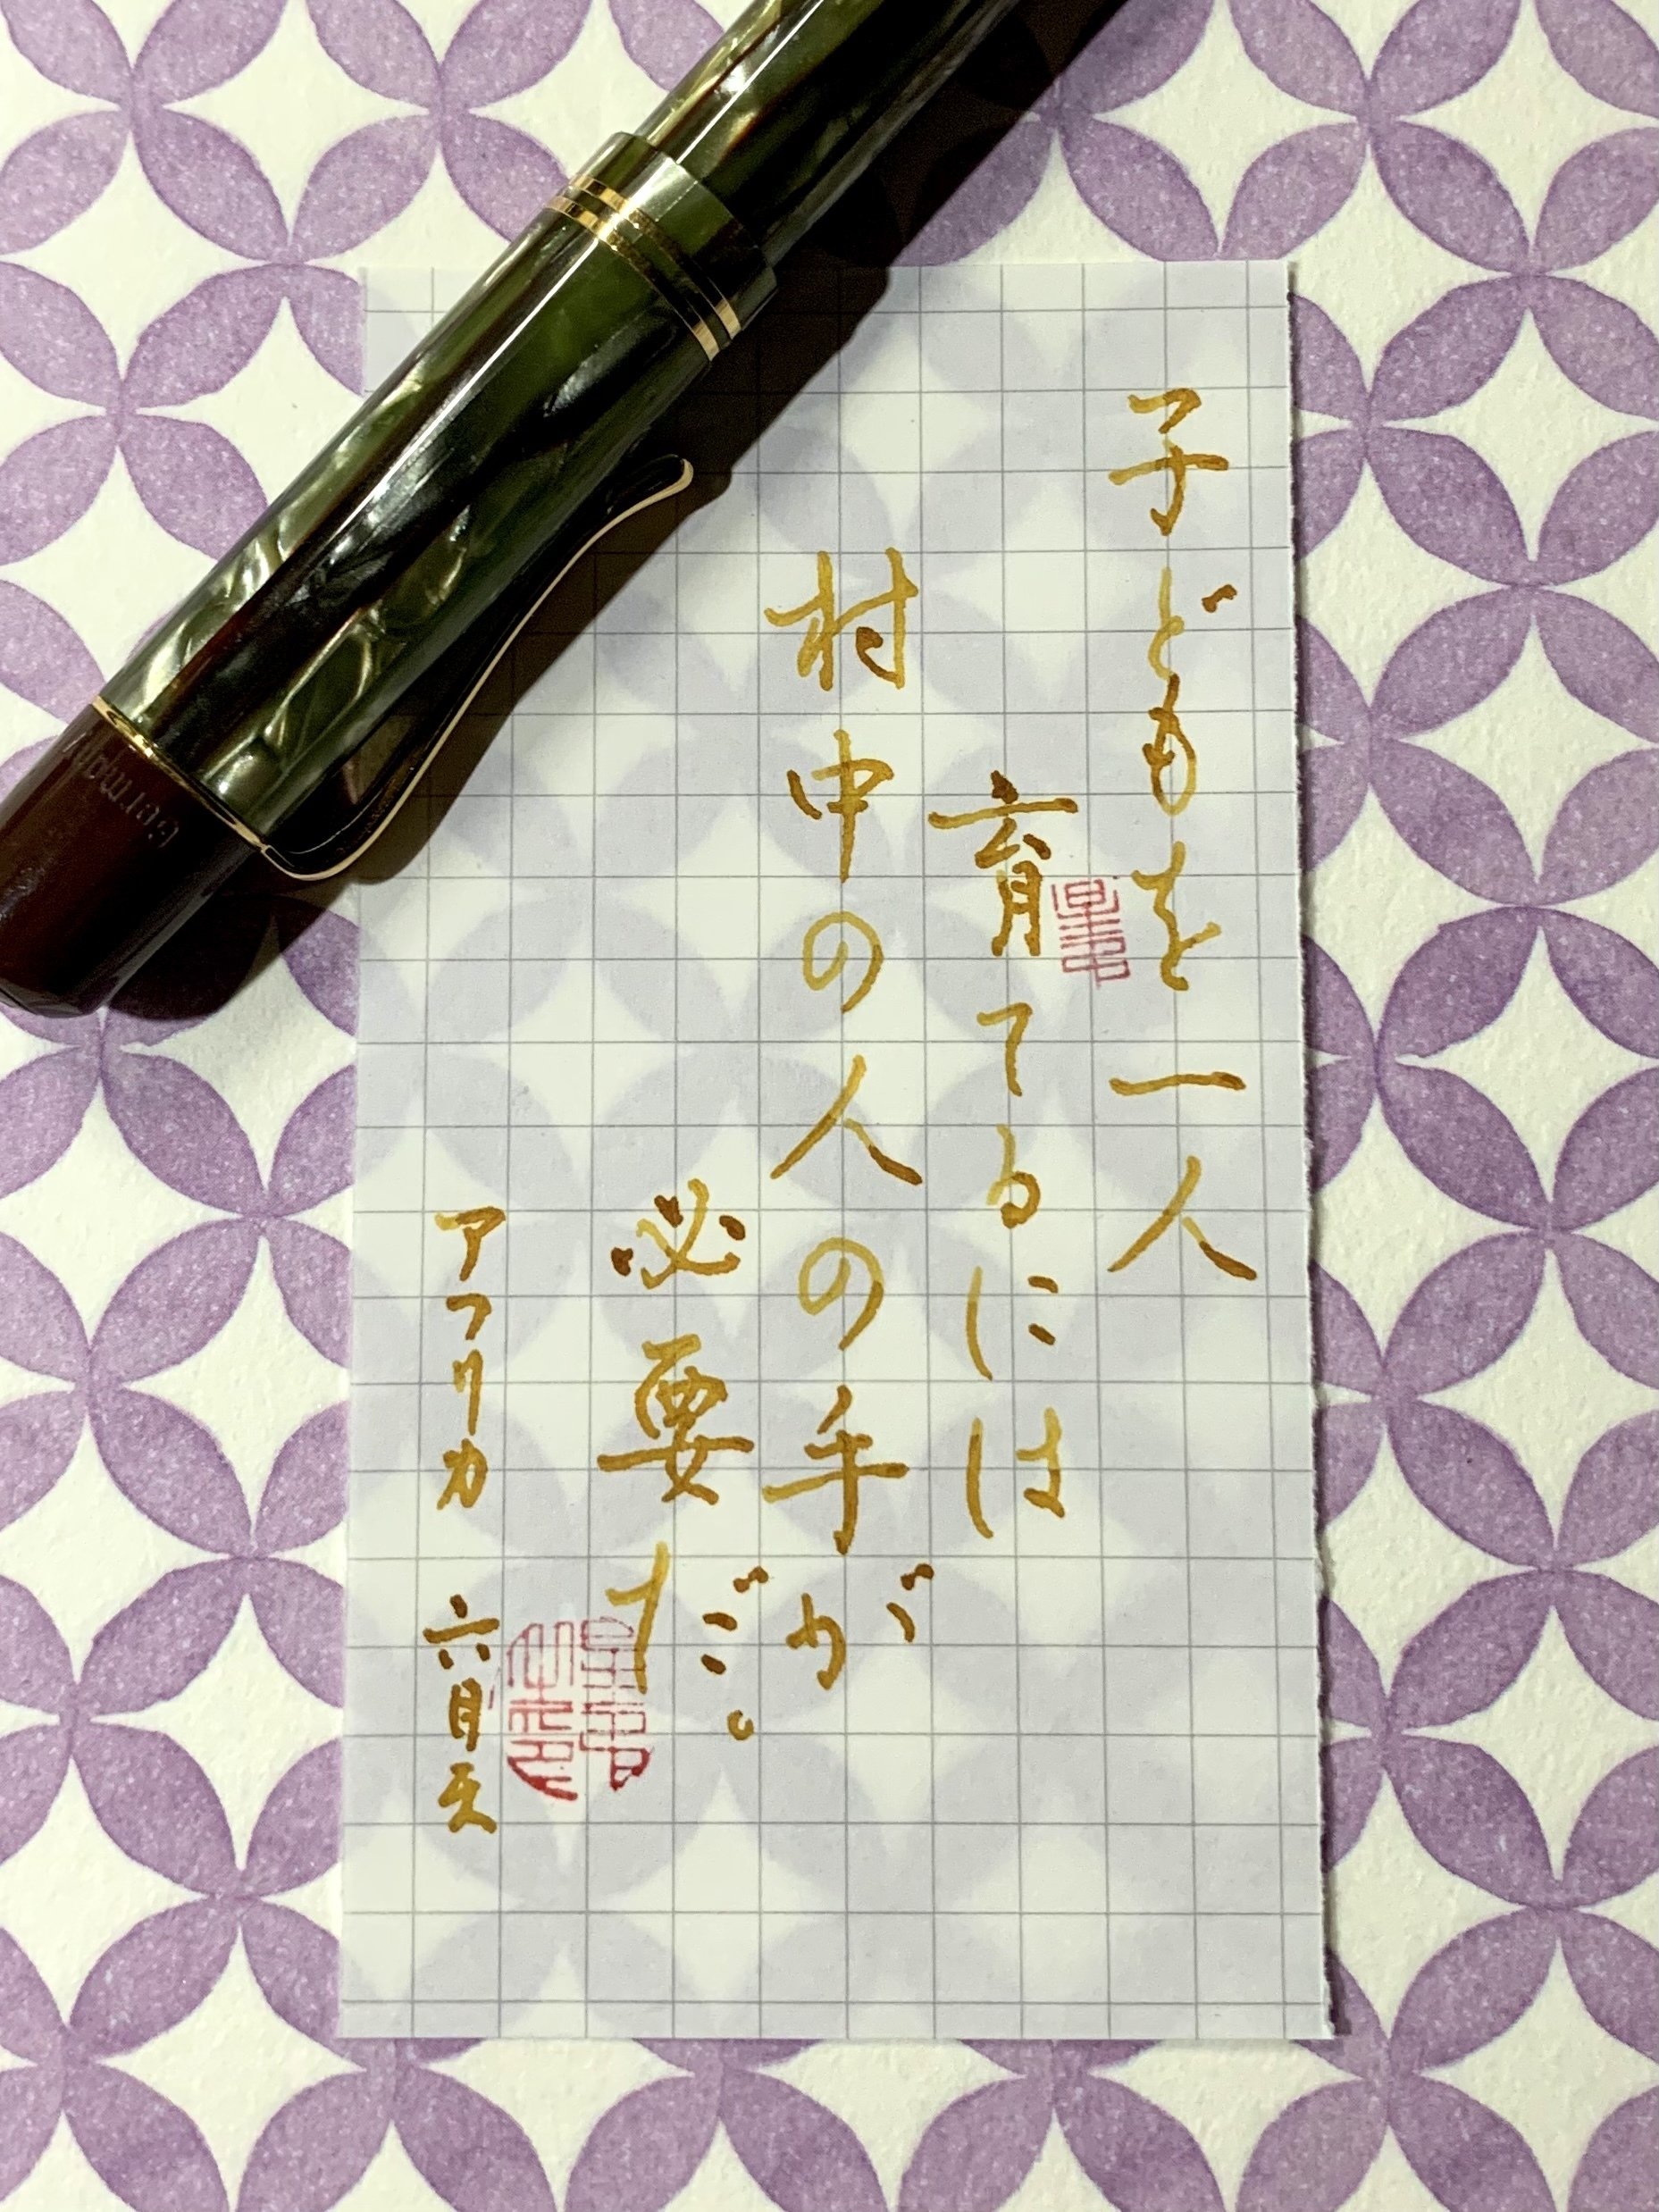 子どもを一人
育てるには
村中の人の手が
必要だ。
アフリカ 六月天
German